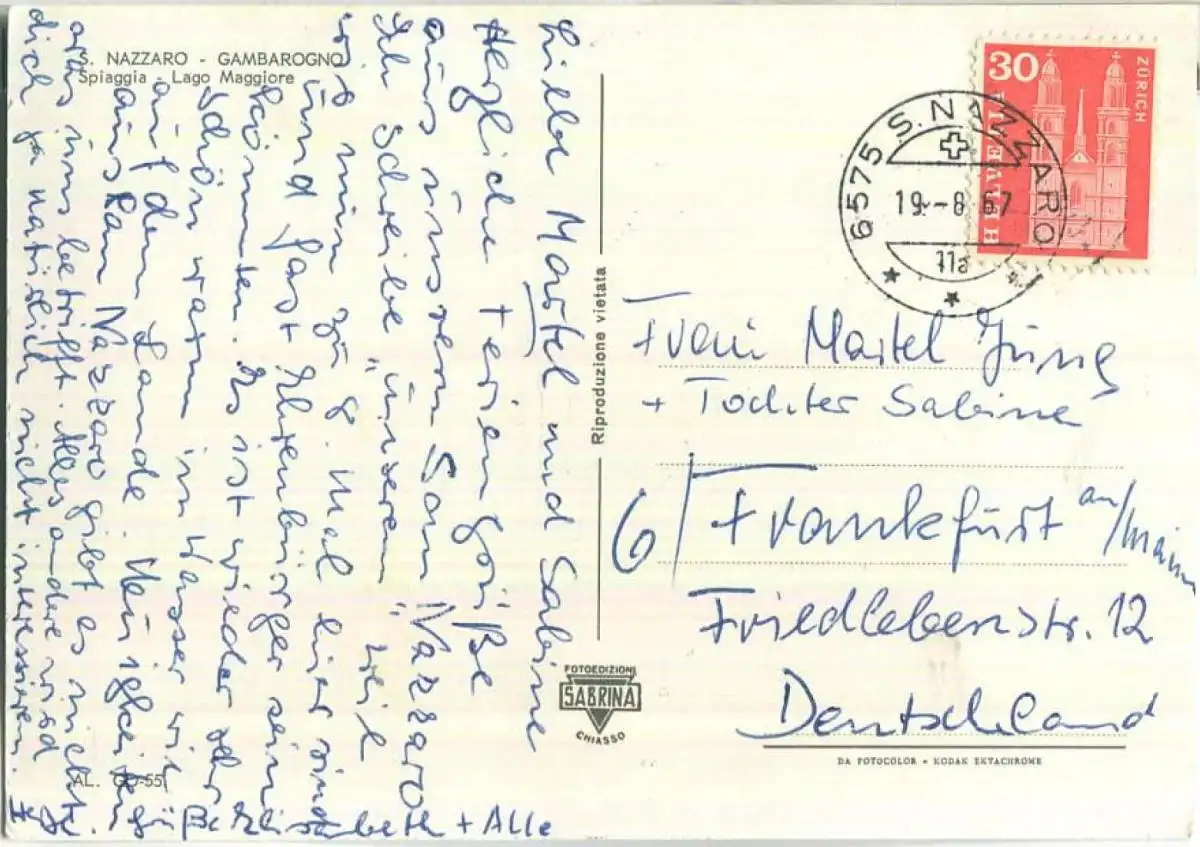 S. NAZZARO - GAMBAROGNO
Spiaggia - Lago Maggiore
Liebe Martel und Sabine
Herzliche Feriengrüße
aus unserm San Nazzaro
Ich schreibe "unseren" weil
wir nun zu 8. Mal hier sind
und fast Ehrenbürger sein
können. Es ist wieder sehr
schön warm in Wasser wie
auf dem Lande. Neuigkeiten
aus San Nazzaro gibt es nicht
was uns betrifft. Alles andere wird
dich ja natürlich nicht interessieren.
grüßt Elisabeth + Alle
AL. GO-55
Riproduzione vietata
FOTOEDIZIONI
SABRINA
CHIASSO
30
ZÜRICH
HELVETIA
6575 S. NAZZARO
19.-8.67
11a
Frau Martel Jung
+ Tochter Sabine
6/Frankfurt am/Main
Friedlebenstr. 12
Deutschland
DA FOTOCOLOR - KODAK EKTACHROME